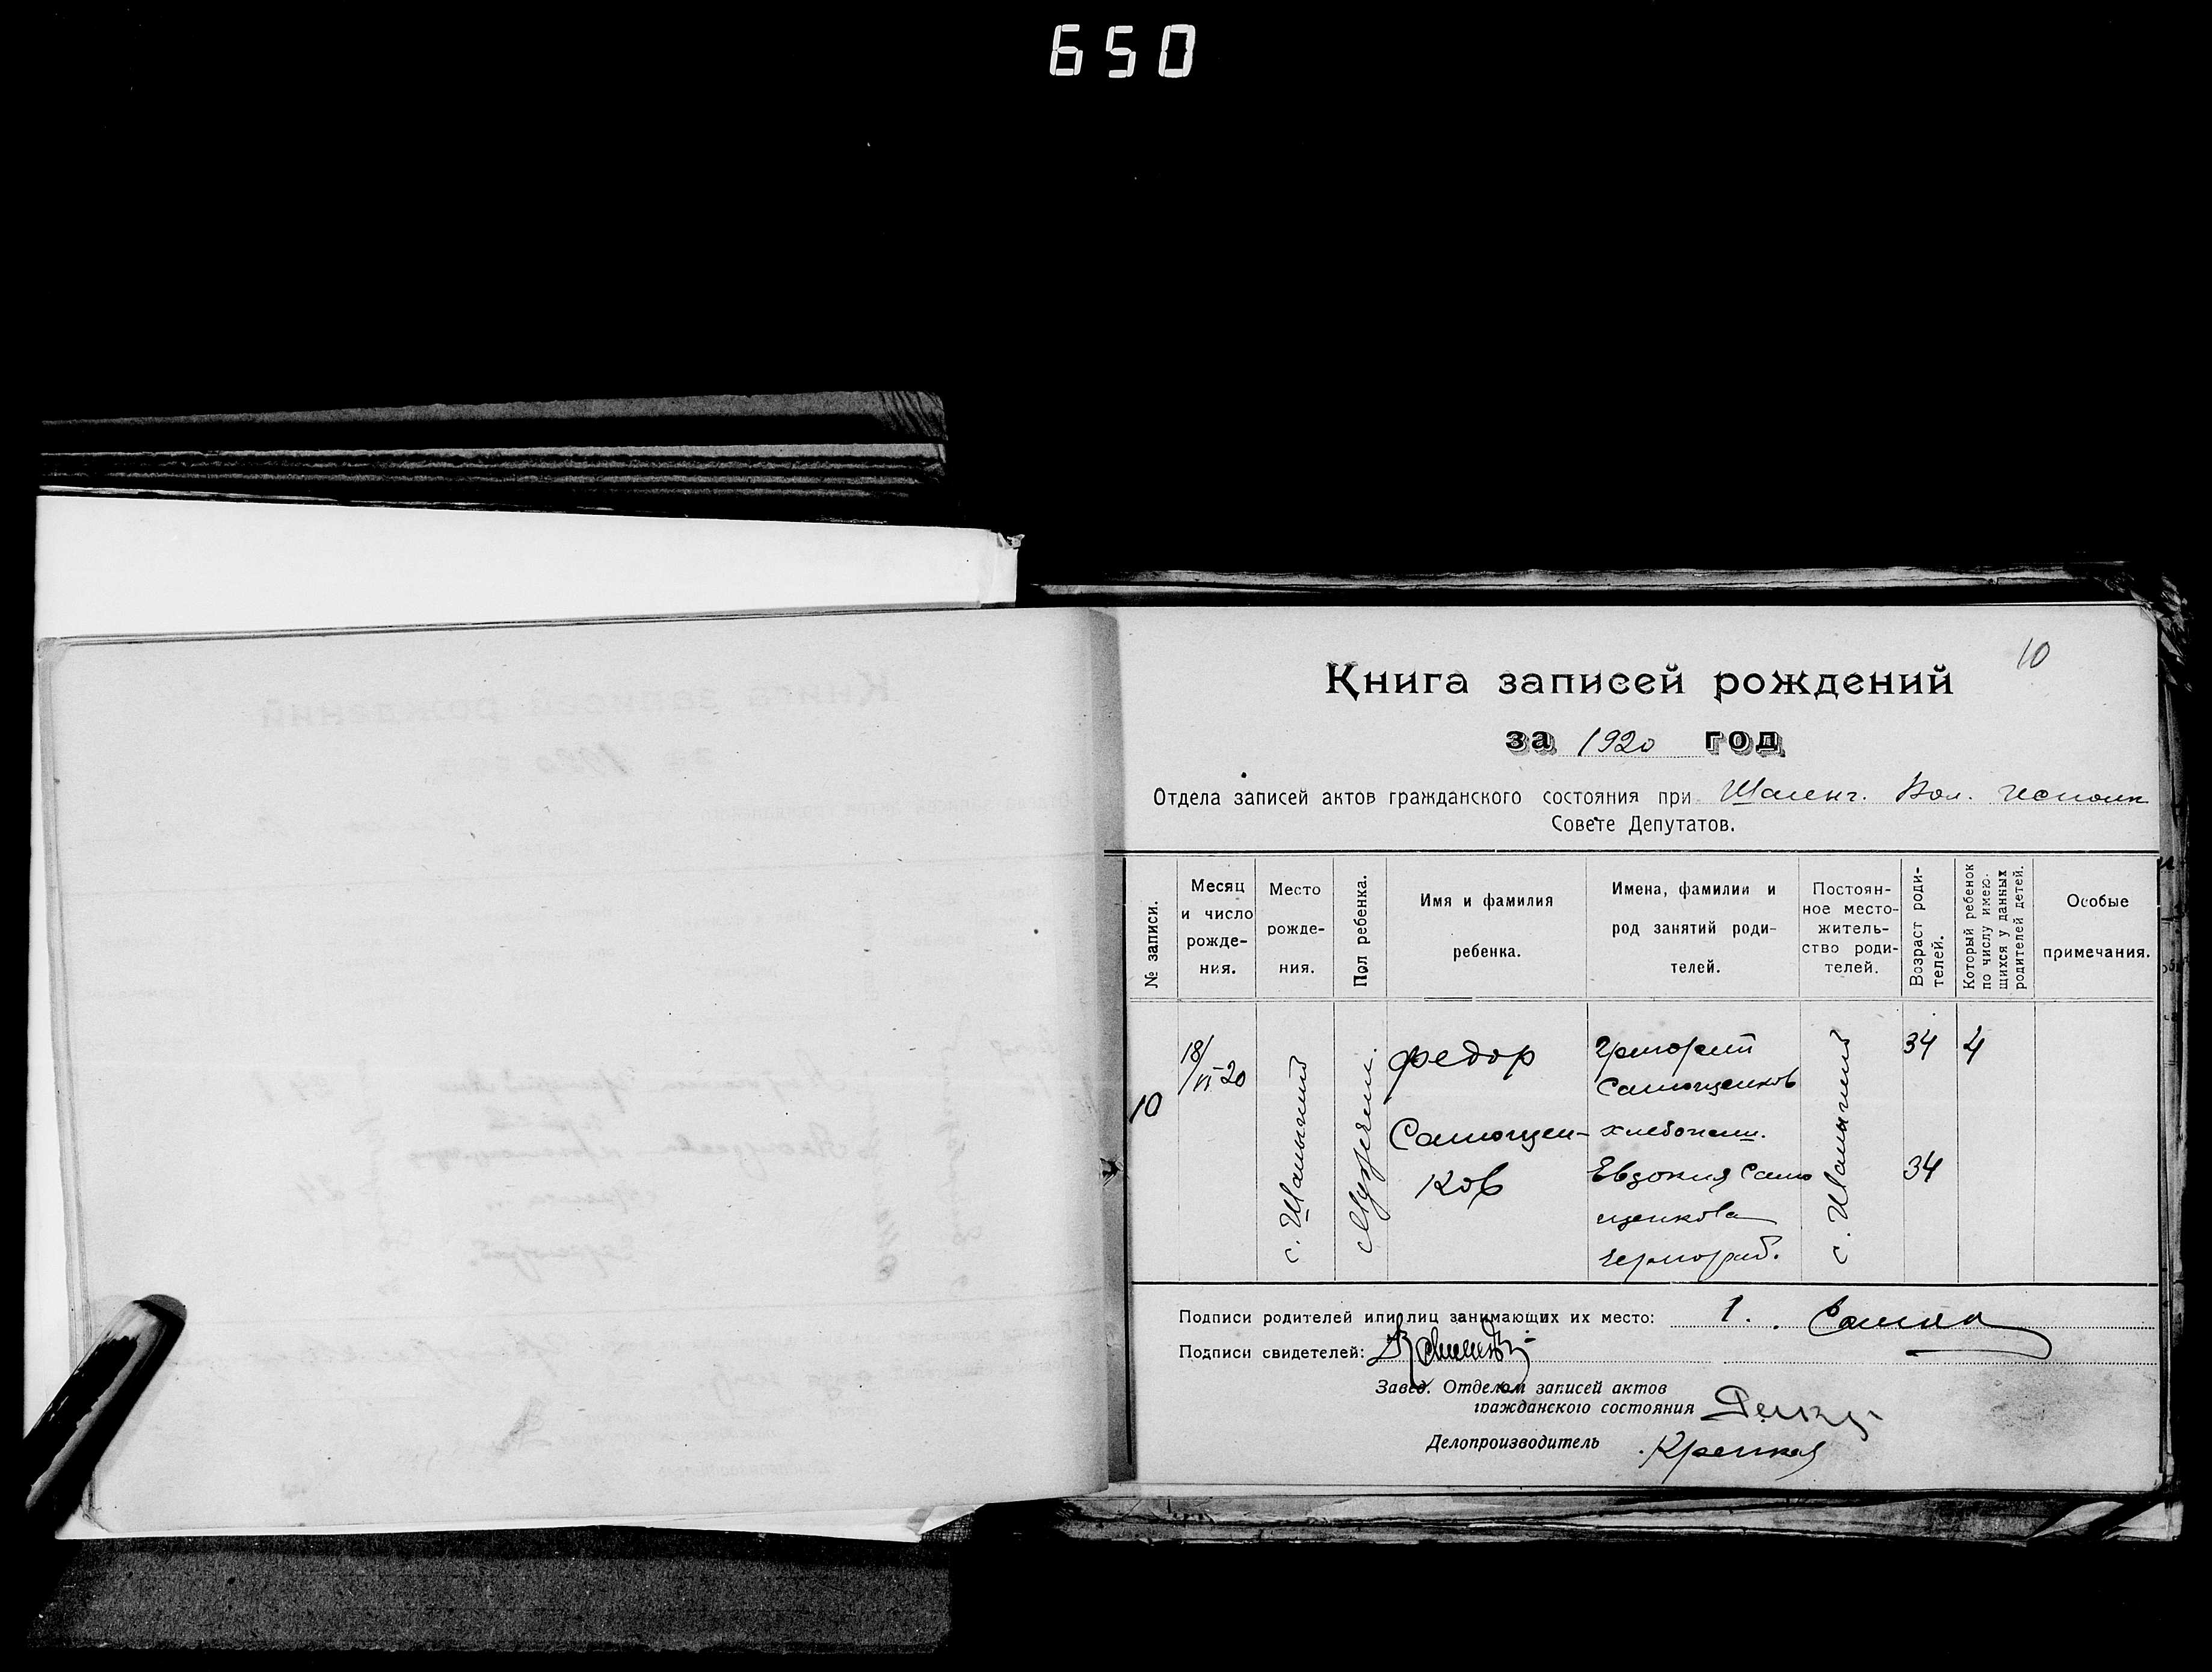 650
10
Книга записей рождений
за 1920 год
Отдела записей актов гражданского состояния при Шаленг. Вол. Исполк
Совете Депутатов.
№ записи.
Месяц и число рожде- ния.
Место рожде- ния.
Пол ребенка.
Имя и фамилия ребенка.
Имена, фамилии и род занятий роди- телей.
Постоян- ное место- житель- ство роди- телей.
Возраст роди- телей.
Который ребенок по числу имею- щихся у данных родителей детей.
Особые примечания.
10
18/
VI 20
с.
Мужеский.
Федор
Самощен-
ков
Григорий
Самощенков
хлебопаш.
Евдокия Само
щенкова
чернораб.
с.
34
34
4
Подписи родителей или лиц занимающих их место: 1.
Подписи свидетелей:
Завед. Отделом записей актов
гражданского состояния
Делопроизводитель